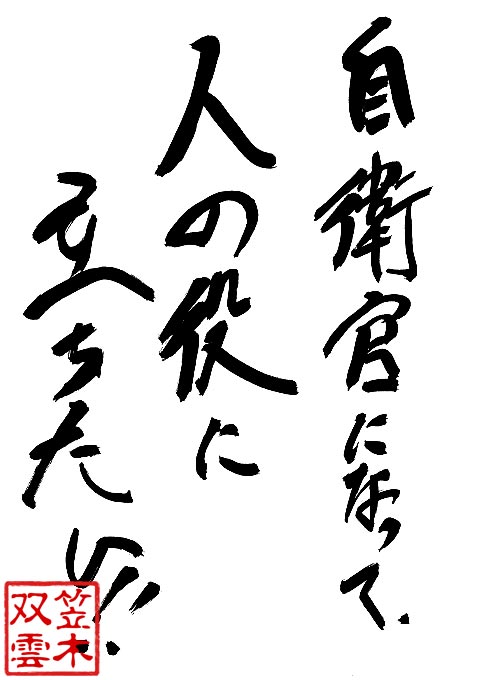 自衛官になって、
人の役に
立ちたい。
笠木
双雲